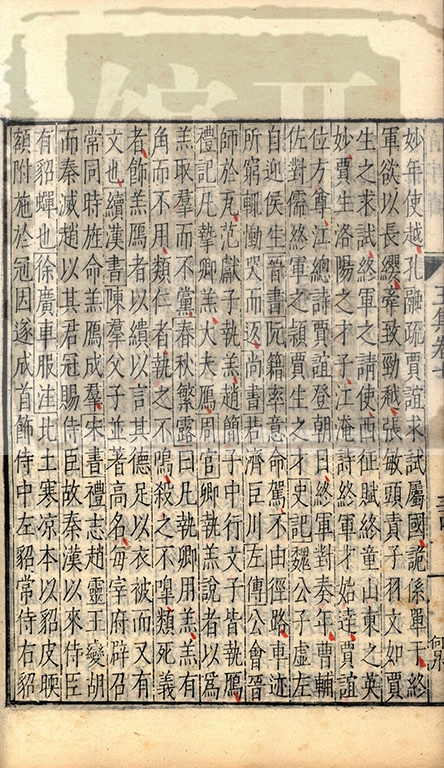 妙年使越孔融疏賈誼求試屬國詭係單于終
軍欲以長纓牽致勁越張敏頭責子羽文如賈
生之求試終軍之請使西征賦終童山東之英
妙賈生洛陽之才子江淹詩終軍才始達賈誼
位方尊江總詩賈誼登朝日終軍對奏年曹輔
佐對儒終軍之穎賈生之才史記魏公子虛左
自迎侯生晉書阮籍率意命駕不由徑路車迹
所窮輒慟哭而返尚書若濟巨川左傳公會晉
師於瓦范獻子執羔趙簡子中行文子皆執鴈
禮記凡摯卿羔大夫鴈周官卿執羔說者以爲
羔取羣而不黨春秋繁露曰凡執卿用羔羔有
角而不用類仁者執之不鳴殺之不嘷類死義
者飾羔鴈者以繢以言其德足以衣被而又有
文也續漢書陳羣父子並著高名每宰府辟召
常同時旌命羔鴈成羣宋書禮志趙靈王變胡
而秦滅趙以其君冠賜侍臣故秦漢以來侍臣
有貂蟬也徐廣車服注北土寒凉本以貂皮暎
額附施於冠因遂成首飾侍中左貂常侍右貂